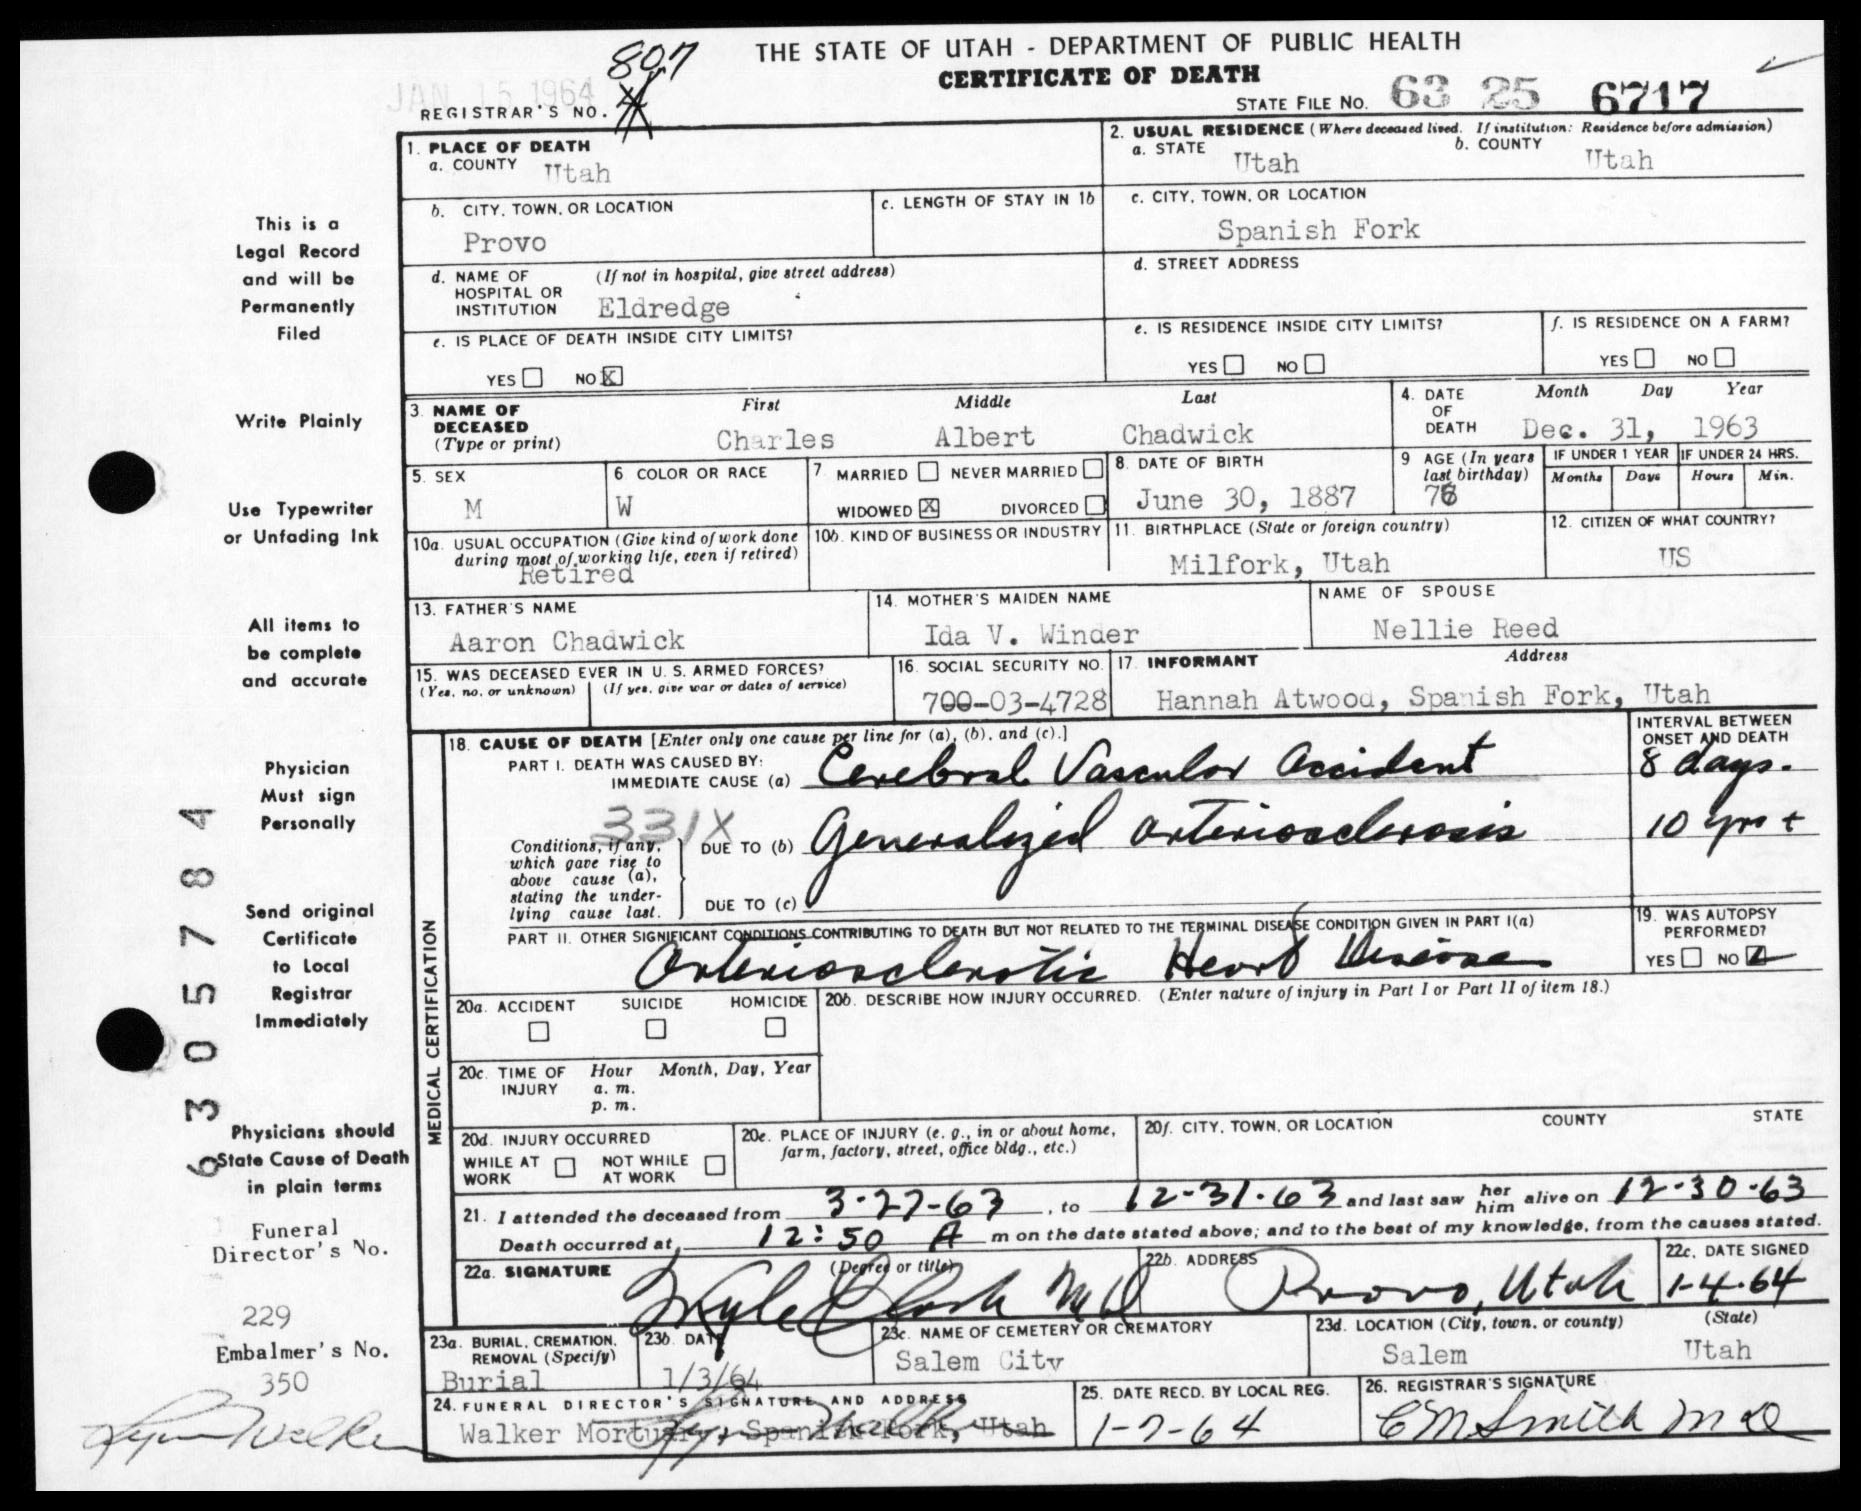 THE STATE OF UTAH - DEPARTMENT OF PUBLIC HEALTH
CERTIFICATE OF DEATH
JAN 15 1964
807
REGISTRAR'S NO.
STATE FILE NO. 63 25 6717
1. PLACE OF DEATH
a. COUNTY Utah
2. USUAL RESIDENCE (Where deceased lived. If institution: Residence before admission)
a. STATE Utah b. COUNTY Utah
b. CITY, TOWN, OR LOCATION
Provo
c. LENGTH OF STAY IN 1b
c. CITY, TOWN, OR LOCATION
Spanish Fork
d. NAME OF HOSPITAL OR INSTITUTION (If not in hospital, give street address)
Eldredge
d. STREET ADDRESS
e. IS PLACE OF DEATH INSIDE CITY LIMITS?
YES NO X
e. IS RESIDENCE INSIDE CITY LIMITS?
YES NO
f. IS RESIDENCE ON A FARM?
YES NO
3. NAME OF DECEASED (Type or print)
First Middle Last
Charles Albert Chadwick
4. DATE OF DEATH Month Day Year
Dec. 31, 1963
5. SEX
M
6 COLOR OR RACE
W
7. MARRIED NEVER MARRIED
WIDOWED X DIVORCED
8. DATE OF BIRTH
June 30, 1887
9 AGE (In years last birthday)
76
IF UNDER 1 YEAR
Months Days
IF UNDER 24 HRS.
Hours Min.
10a. USUAL OCCUPATION (Give kind of work done during most of working life, even if retired)
Retired
10b. KIND OF BUSINESS OR INDUSTRY
11. BIRTHPLACE (State or foreign country)
Milfork, Utah
12. CITIZEN OF WHAT COUNTRY?
US
13. FATHER'S NAME
Aaron Chadwick
14. MOTHER'S MAIDEN NAME
Ida V. Winder
NAME OF SPOUSE
Nellie Reed
15. WAS DECEASED EVER IN U. S. ARMED FORCES?
(Yes, no, or unknown) (If yes, give war or dates of service)
16. SOCIAL SECURITY NO.
700-03-4728
17. INFORMANT Address
Hannah Atwood, Spanish Fork, Utah
MEDICAL CERTIFICATION
18. CAUSE OF DEATH [Enter only one cause per line for (a), (b), and (c).]
INTERVAL BETWEEN ONSET AND DEATH
PART I. DEATH WAS CAUSED BY:
IMMEDIATE CAUSE (a) Cerebral Vascular Accident 8 days.
331X
Conditions, if any, which gave rise to above cause (a), stating the underlying cause last.
DUE TO (b) Generalized arteriosclerosis 10 yrs +
DUE TO (c)
PART II. OTHER SIGNIFICANT CONDITIONS CONTRIBUTING TO DEATH BUT NOT RELATED TO THE TERMINAL DISEASE CONDITION GIVEN IN PART I(a)
Arteriosclerotic Heart Disease
19. WAS AUTOPSY PERFORMED?
YES NO
20a. ACCIDENT SUICIDE HOMICIDE
20b. DESCRIBE HOW INJURY OCCURRED. (Enter nature of injury in Part I or Part II of item 18.)
20c. TIME OF INJURY Hour Month, Day, Year
a. m.
p. m.
20d. INJURY OCCURRED
WHILE AT WORK NOT WHILE AT WORK
20e. PLACE OF INJURY (e. g., in or about home, farm, factory, street, office bldg., etc.)
20f. CITY, TOWN, OR LOCATION COUNTY STATE
21. I attended the deceased from 3-27-63, to 12-31-63 and last saw her him alive on 12-30-63
Death occurred at 12:50 A m on the date stated above; and to the best of my knowledge, from the causes stated.
22a. SIGNATURE (Degree or title)
Clark MD
22b. ADDRESS
Provo, Utah
22c. DATE SIGNED
1-4-64
23a. BURIAL, CREMATION, REMOVAL (Specify)
Burial
23b. DATE
1/3/64
23c. NAME OF CEMETERY OR CREMATORY
Salem City
23d. LOCATION (City, town, or county) (State)
Salem Utah
24. FUNERAL DIRECTOR'S SIGNATURE AND ADDRESS
Walker Mortuary, Spanish Fork, Utah
25. DATE RECD. BY LOCAL REG.
1-7-64
26. REGISTRAR'S SIGNATURE
C M Smith M D
This is a
Legal Record
and will be
Permanently
Filed
Write Plainly
Use Typewriter
or Unfading Ink
All items to
be complete
and accurate
Physician
Must sign
Personally
Send original
Certificate
to Local
Registrar
Immediately
Physicians should
State Cause of Death
in plain terms
Funeral
Director's No.
229
Embalmer's No.
350
Lynn Walker
6305784